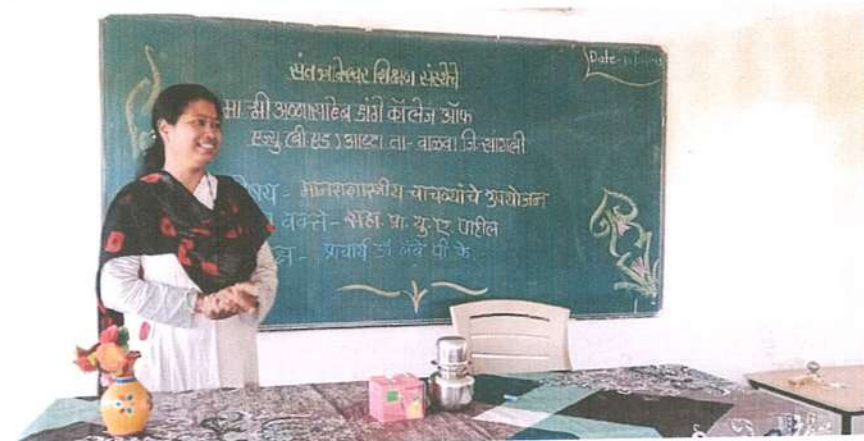 Date-
संत ज्ञानेश्वर शिक्षण संस्थेचे
मा. श्री अण्णासाहेब डांगे कॉलेज ऑफ
एज्यु (बी एड) आष्टा ता- वाळवा जि-सांगली
षय - मानसशास्त्रीय चाचण्यांचे उपयोजन
वक्ते - सहा. प्रा. यु. ए. पाटील
क्ष - प्राचार्य डॉ लवे पी के